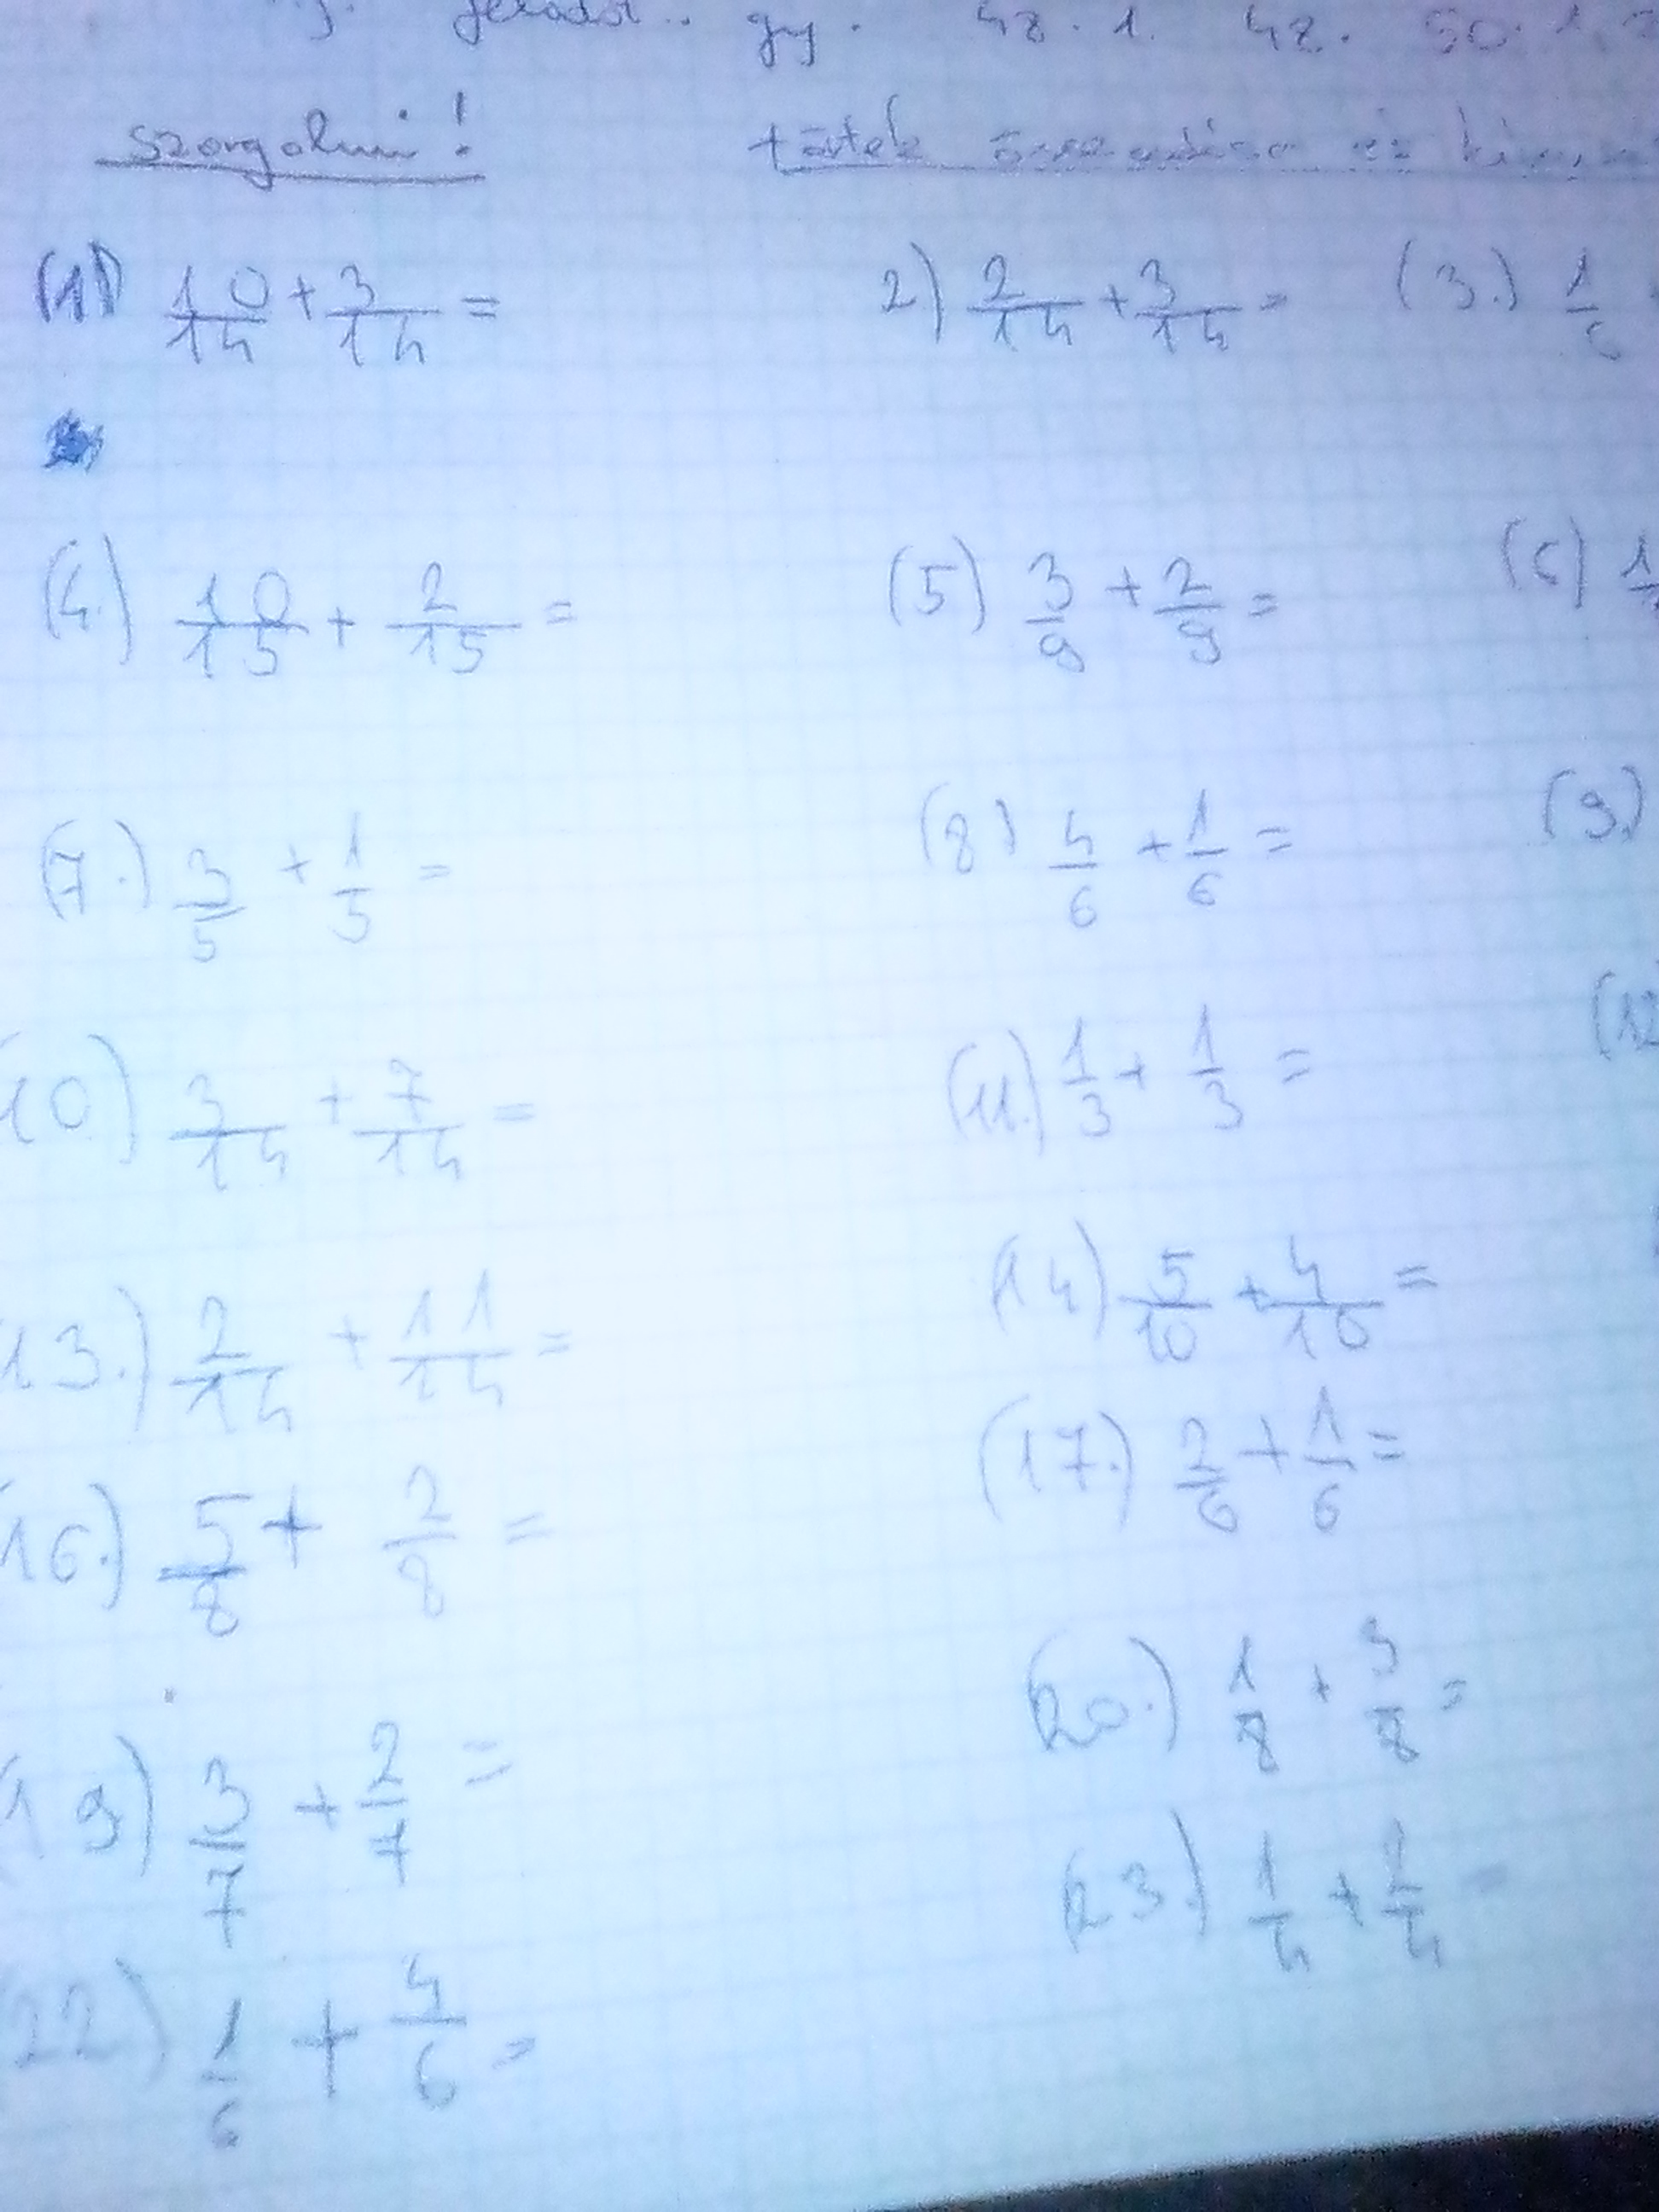 gy. 48. 1. 48. 50. 1,
szorgalmi! törtek összeadása és
(1) 10/14 + 3/14 = 2) 2/14 + 3/14 = (3.) 1/6
(4.) 10/15 + 2/15 = (5) 3/9 + 2/9 = (6) 1
(7.) 3/5 + 1/5 = (8) 4/6 + 1/6 = (9.)
10) 3/14 + 7/14 = (11.) 1/3 + 1/3 = (12
13.) 2/14 + 11/14 = (14) 5/10 + 4/10 =
16.) 5/8 + 2/8 = (17.) 2/6 + 1/6 =
(19) 3/7 + 2/7 = (20.) 1/8 + /8 =
22) 1/6 + 4/6 = (23.) 1/4 + /4 =